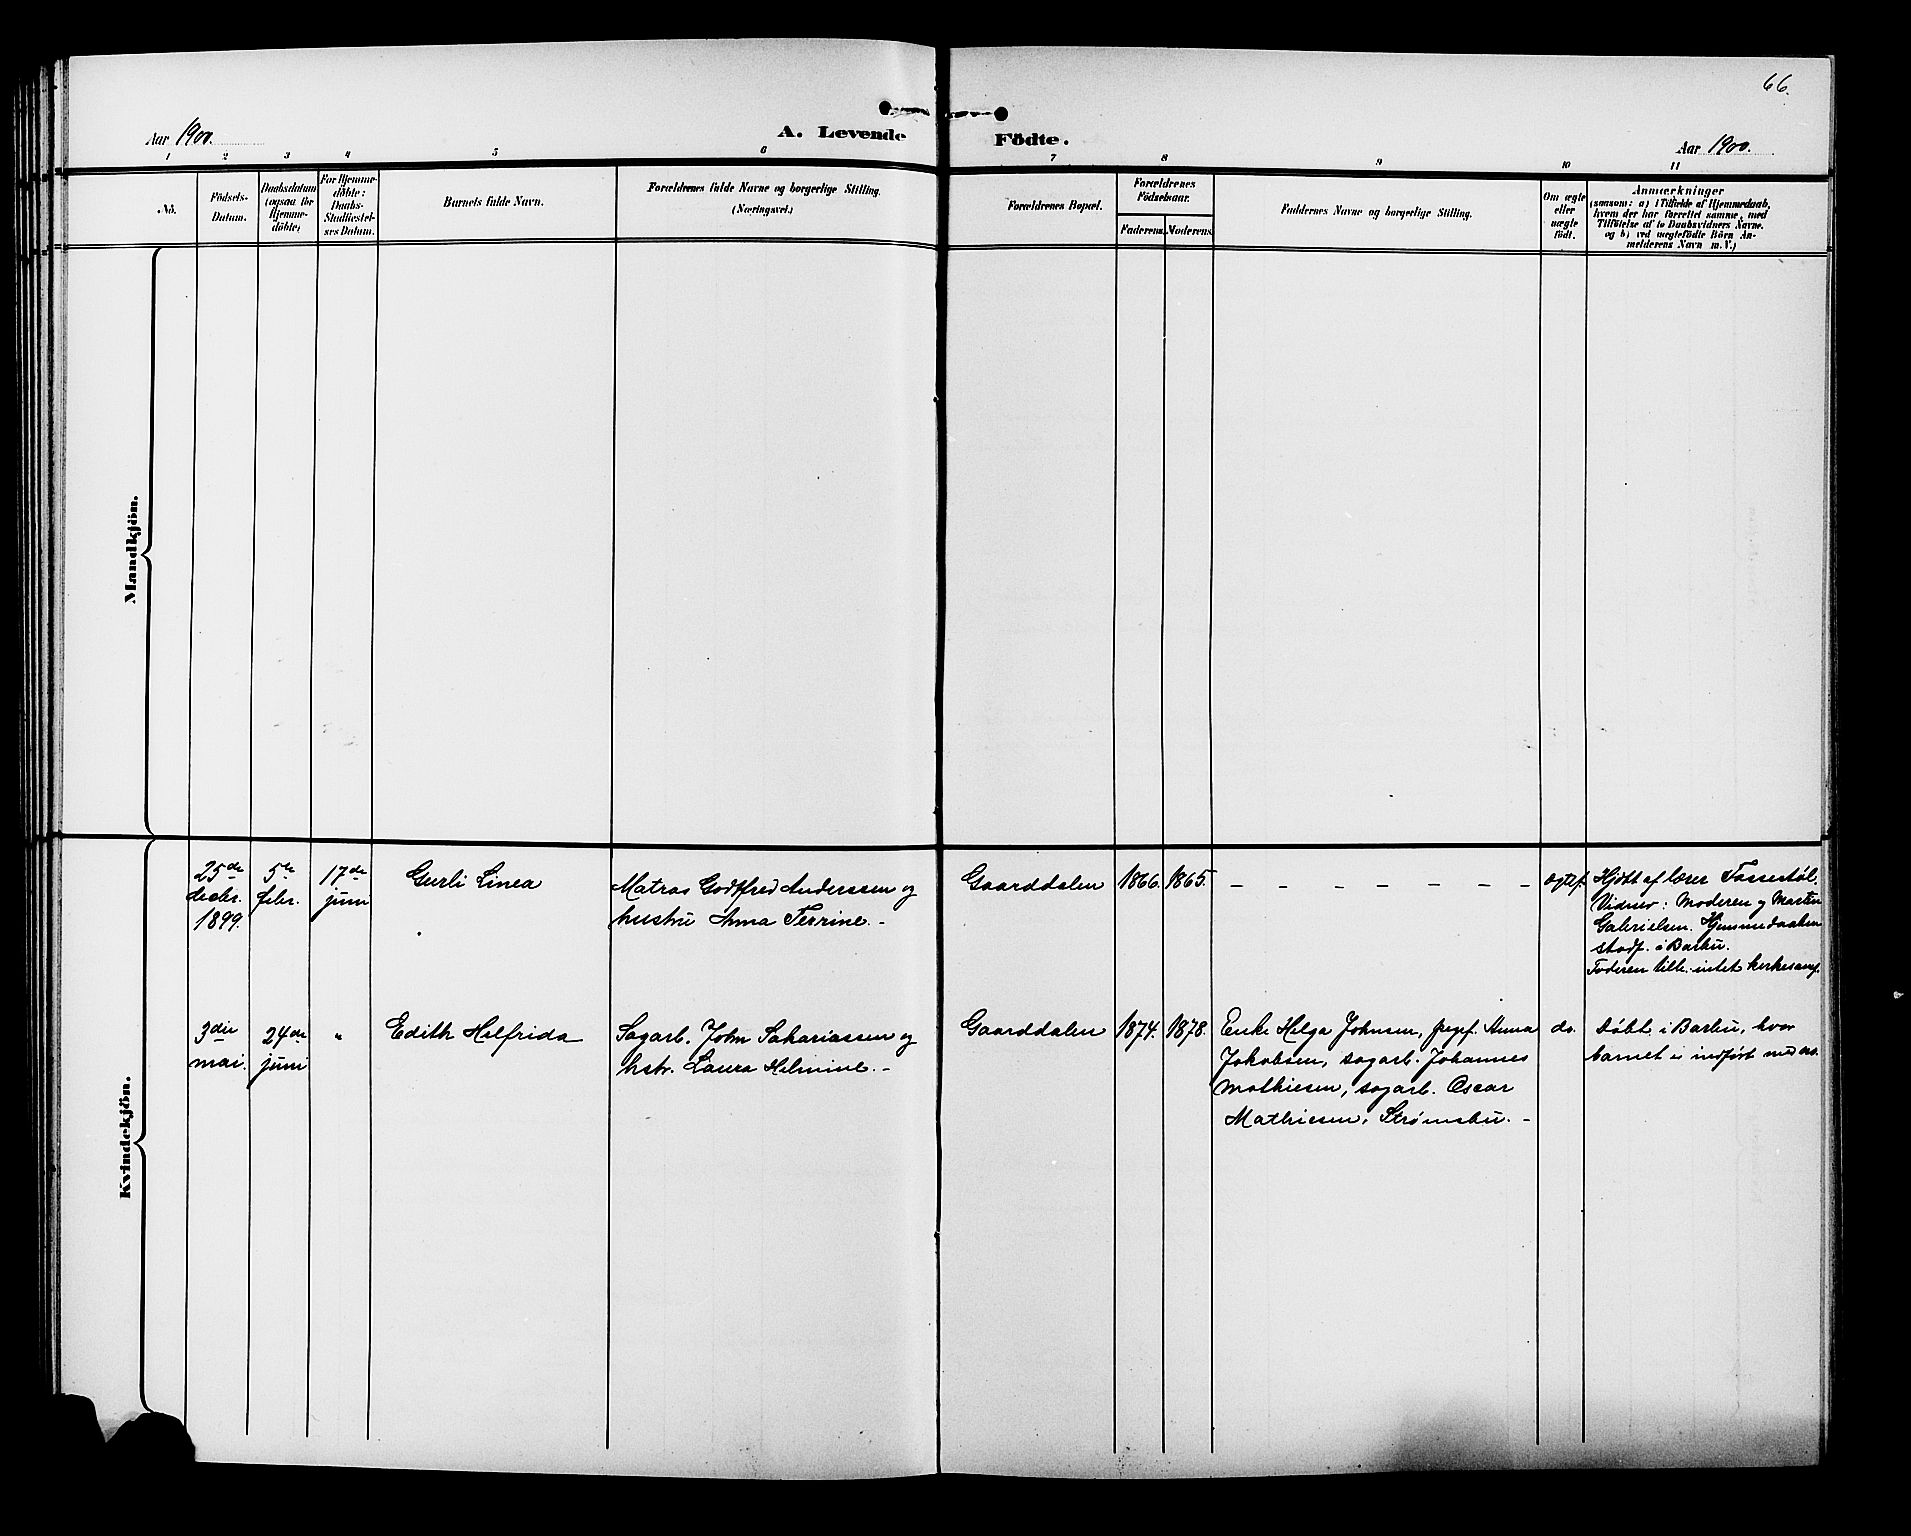 66.
Aar 1900.
A. Levende Födte.
Aar 1900.
1 2 3 4 5 6 7 8 9 10 11
No.
Födsels-
Datum.
Daabsdatum
(ogsaa for
Hjemme-
döbte)
For Hjemme-
döbte:
Daabs-
Stadfæstel-
ses Datum.
Barnets fulde Navn.
Forældrenes fulde Navne og borgerlige Stilling.
(Næringsvei.)
Forældrenes Bopæl.
Forældrenes
Födselsaar.
Faderens. Moderens.
Faddernes Navne og borgerlige Stilling.
Om ægte
eller
uægte
födt.
Anmærkninger
(saasom: a) i Tilfælde af Hjemmedaab,
hvem der har forrettet samme, med
Tilföielse af to Daabsvidners Navne.
og b) ved uægtefödte Börn An-
melderens Navn m. V.)
Mandkjön.
Kvindekjön.
25de
decbr.
1899.
5te
febr.
17de
juni
Gurli Linea
Matros Godtfred Anderssen og
hustru Anna Terrine. -
Gaarddalen
1866.
1865.
- - - - - - -
ægtef.
Hjdbt af lærer Fossestøl.
Vidner: Moderen og Martin
Gabrielsen. Hjemmedaaben
stadf. i Barbu.
Faderen tilh. intet kirkesamf.
3die
mai.
24de
juni
"
Edith Helfrida
Sagarb. John Sakariassen og
hstr. Laura Helmine. -
Gaarddalen
1874.
1878.
Enke Helga Johnsen, pigef. Anna
Jakobsen, sagarb. Johannes
Mathiesen, sagarb. Oscar
Mathiesen, Strømsbu. -
do.
Døbt i Barbu, hvor
barnet er indført med no.